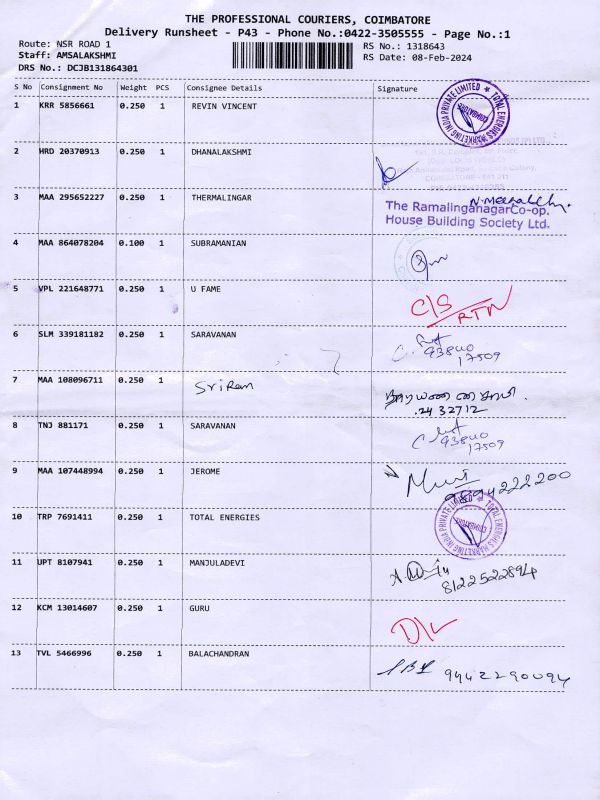 THE PROFESSIONAL COURIERS, COIMBATORE
Delivery Runsheet - P43 - Phone No.:0422-3505555 - Page No.:1
Route: NSR ROAD 1
RS No.: 1318643
Staff: AMSALAKSHMI
RS Date: 08-Feb-2024
DRS No.: DCJB131864301
S No Consignment No Weight PCS Consignee Details Signature
1 KRR 5856661 0.250 1 REVIN VINCENT
TOTAL ENERGIES MARKETING INDIA PRIVATE LIMITED ★
COIMBATORE
2 HRD 20370913 0.250 1 DHANALAKSHMI
3 MAA 295652227 0.250 1 THERMALINGAR
The RamalinganagarCo-op.
House Building Society Ltd.
4 MAA 864078204 0.100 1 SUBRAMANIAN
5 VPL 221648771 0.250 1 U FAME
C/S
RTN
6 SLM 339181182 0.250 1 SARAVANAN
93840
17509
7 MAA 108096711 0.250 1 Sriram
நாராயணசாமி.
2432712
8 TNJ 881171 0.250 1 SARAVANAN
93840
17509
9 MAA 107448994 0.250 1 JEROME
9894222200
10 TRP 7691411 0.250 1 TOTAL ENERGIES
TOTAL ENERGIES MARKETING INDIA PRIVATE LIMITED ★
COIMBATORE
11 UPT 8107941 0.250 1 MANJULADEVI
8122522894
12 KCM 13014607 0.250 1 GURU
D/L
13 TVL 5466996 0.250 1 BALACHANDRAN
9442290094